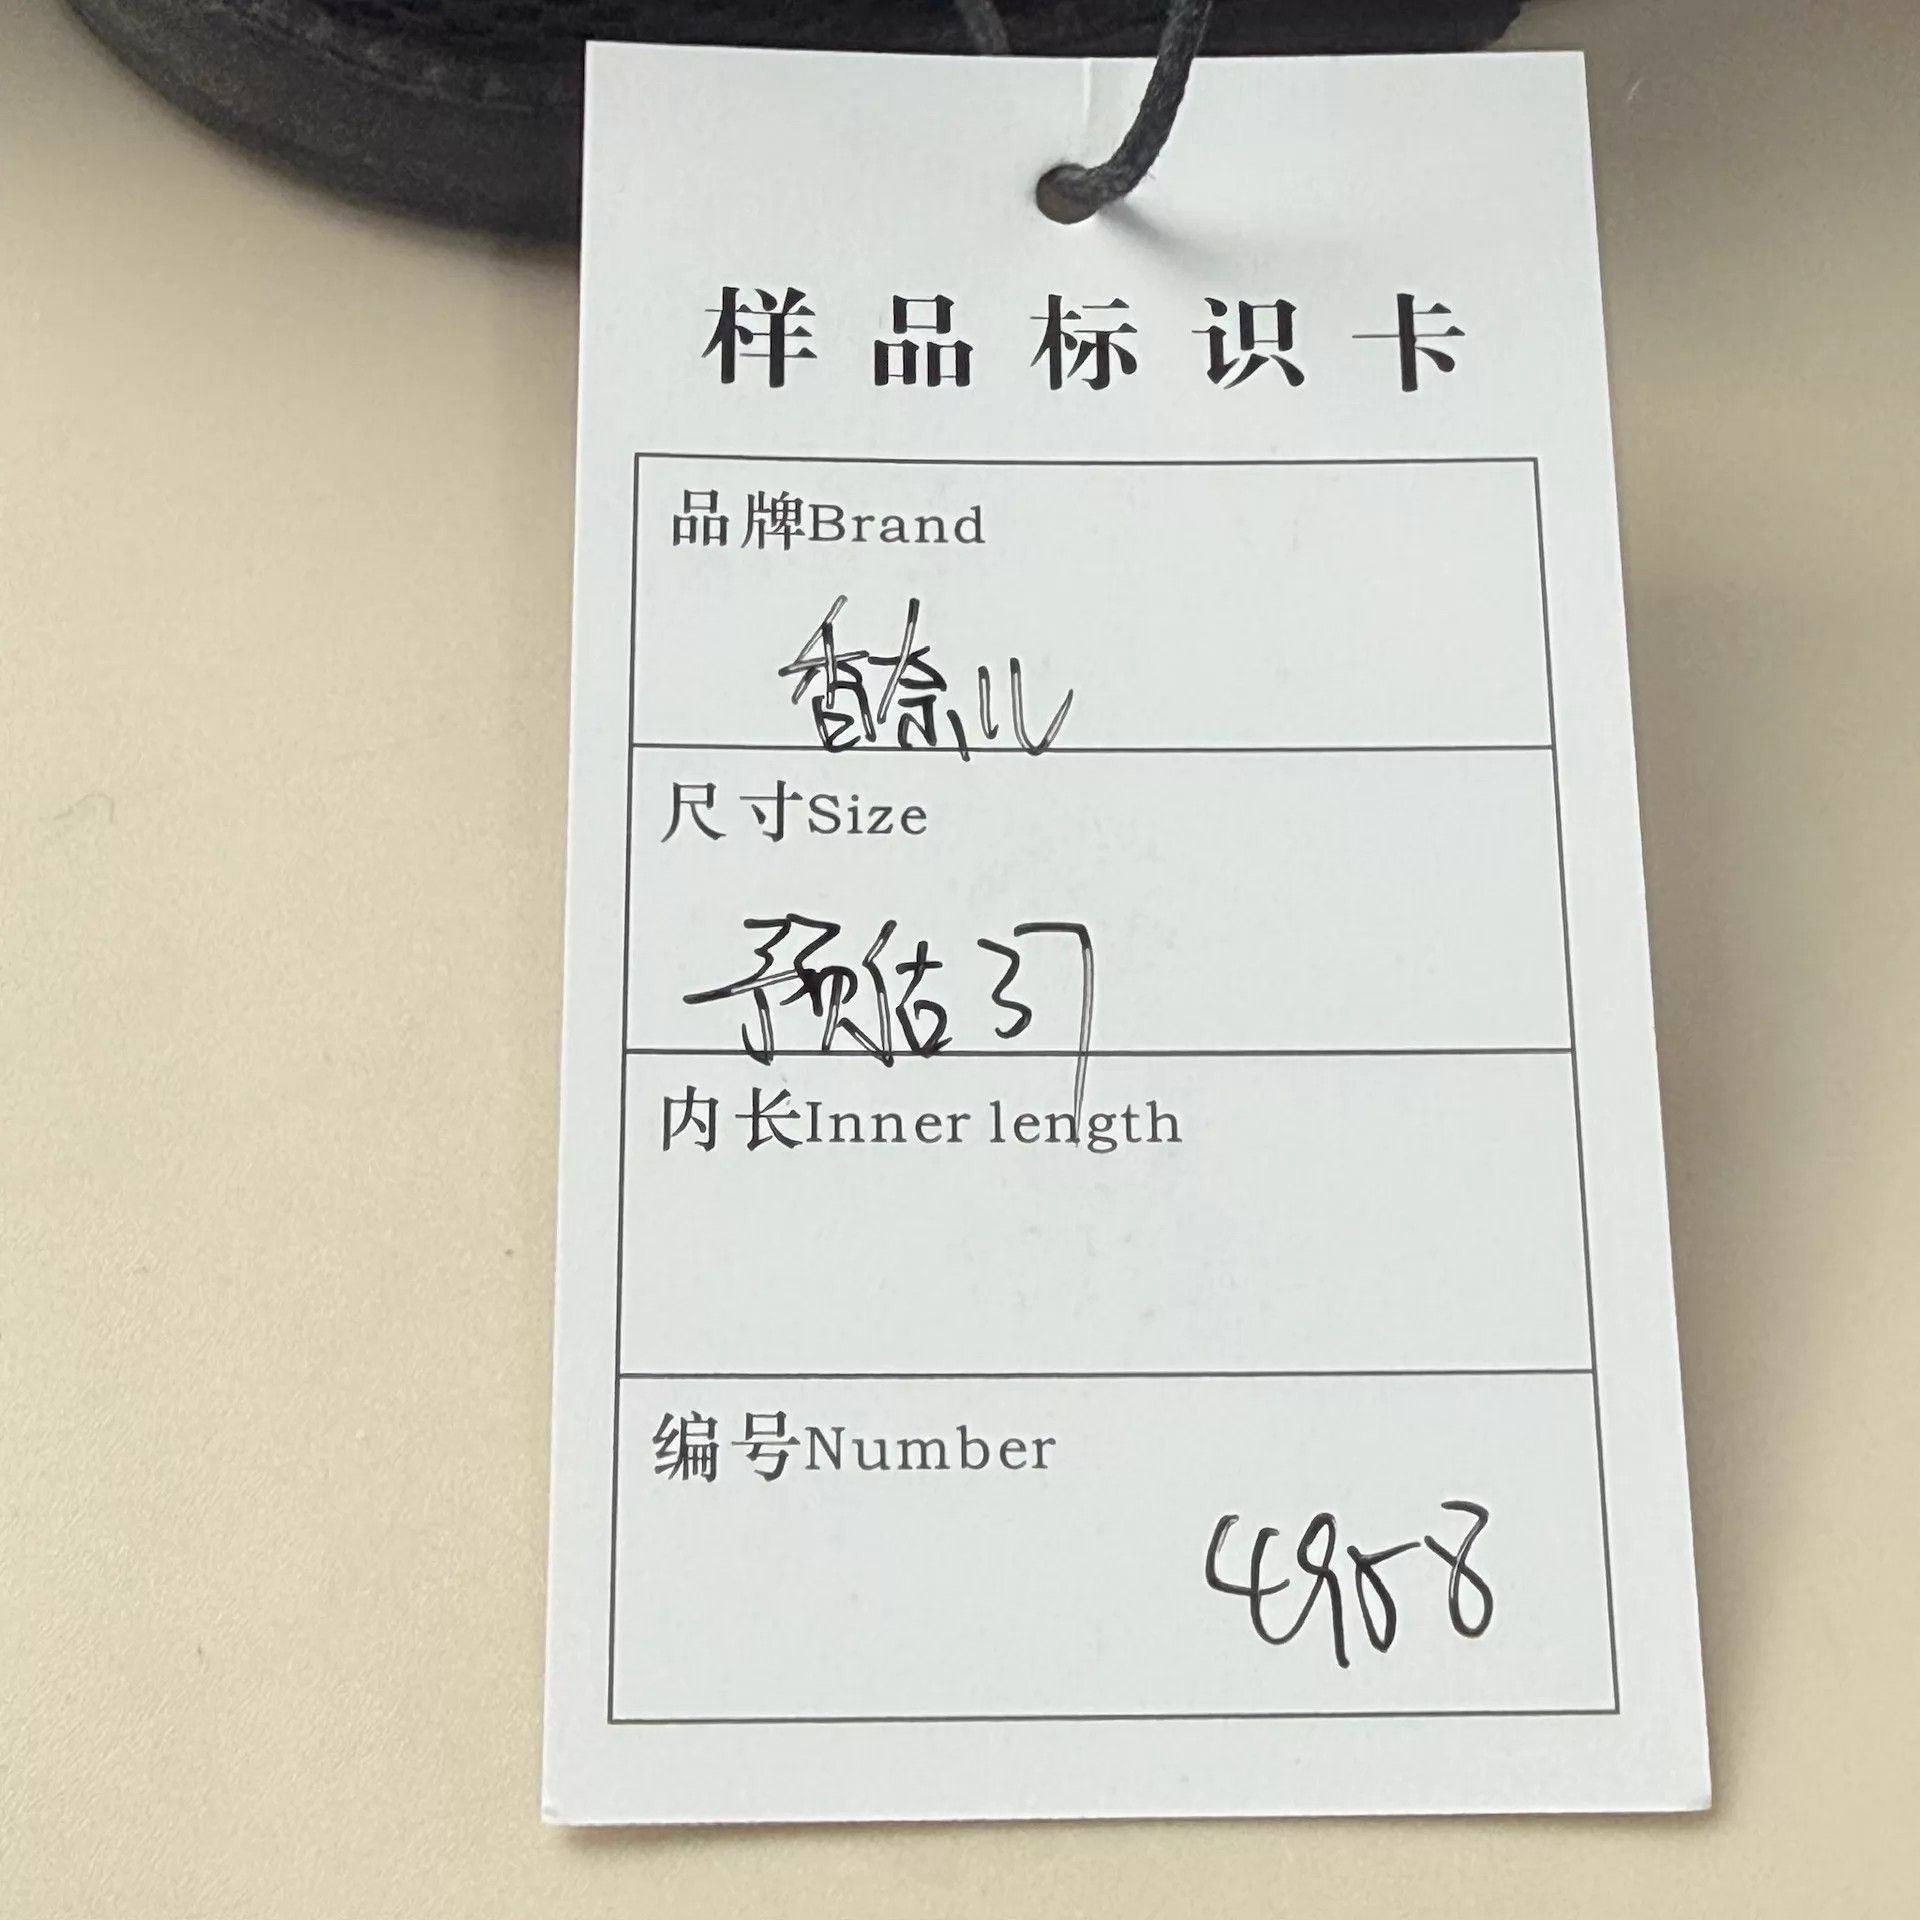 样品标识卡
品牌Brand
香奈儿
尺寸Size
预估37
内长Inner length
编号Number
4958